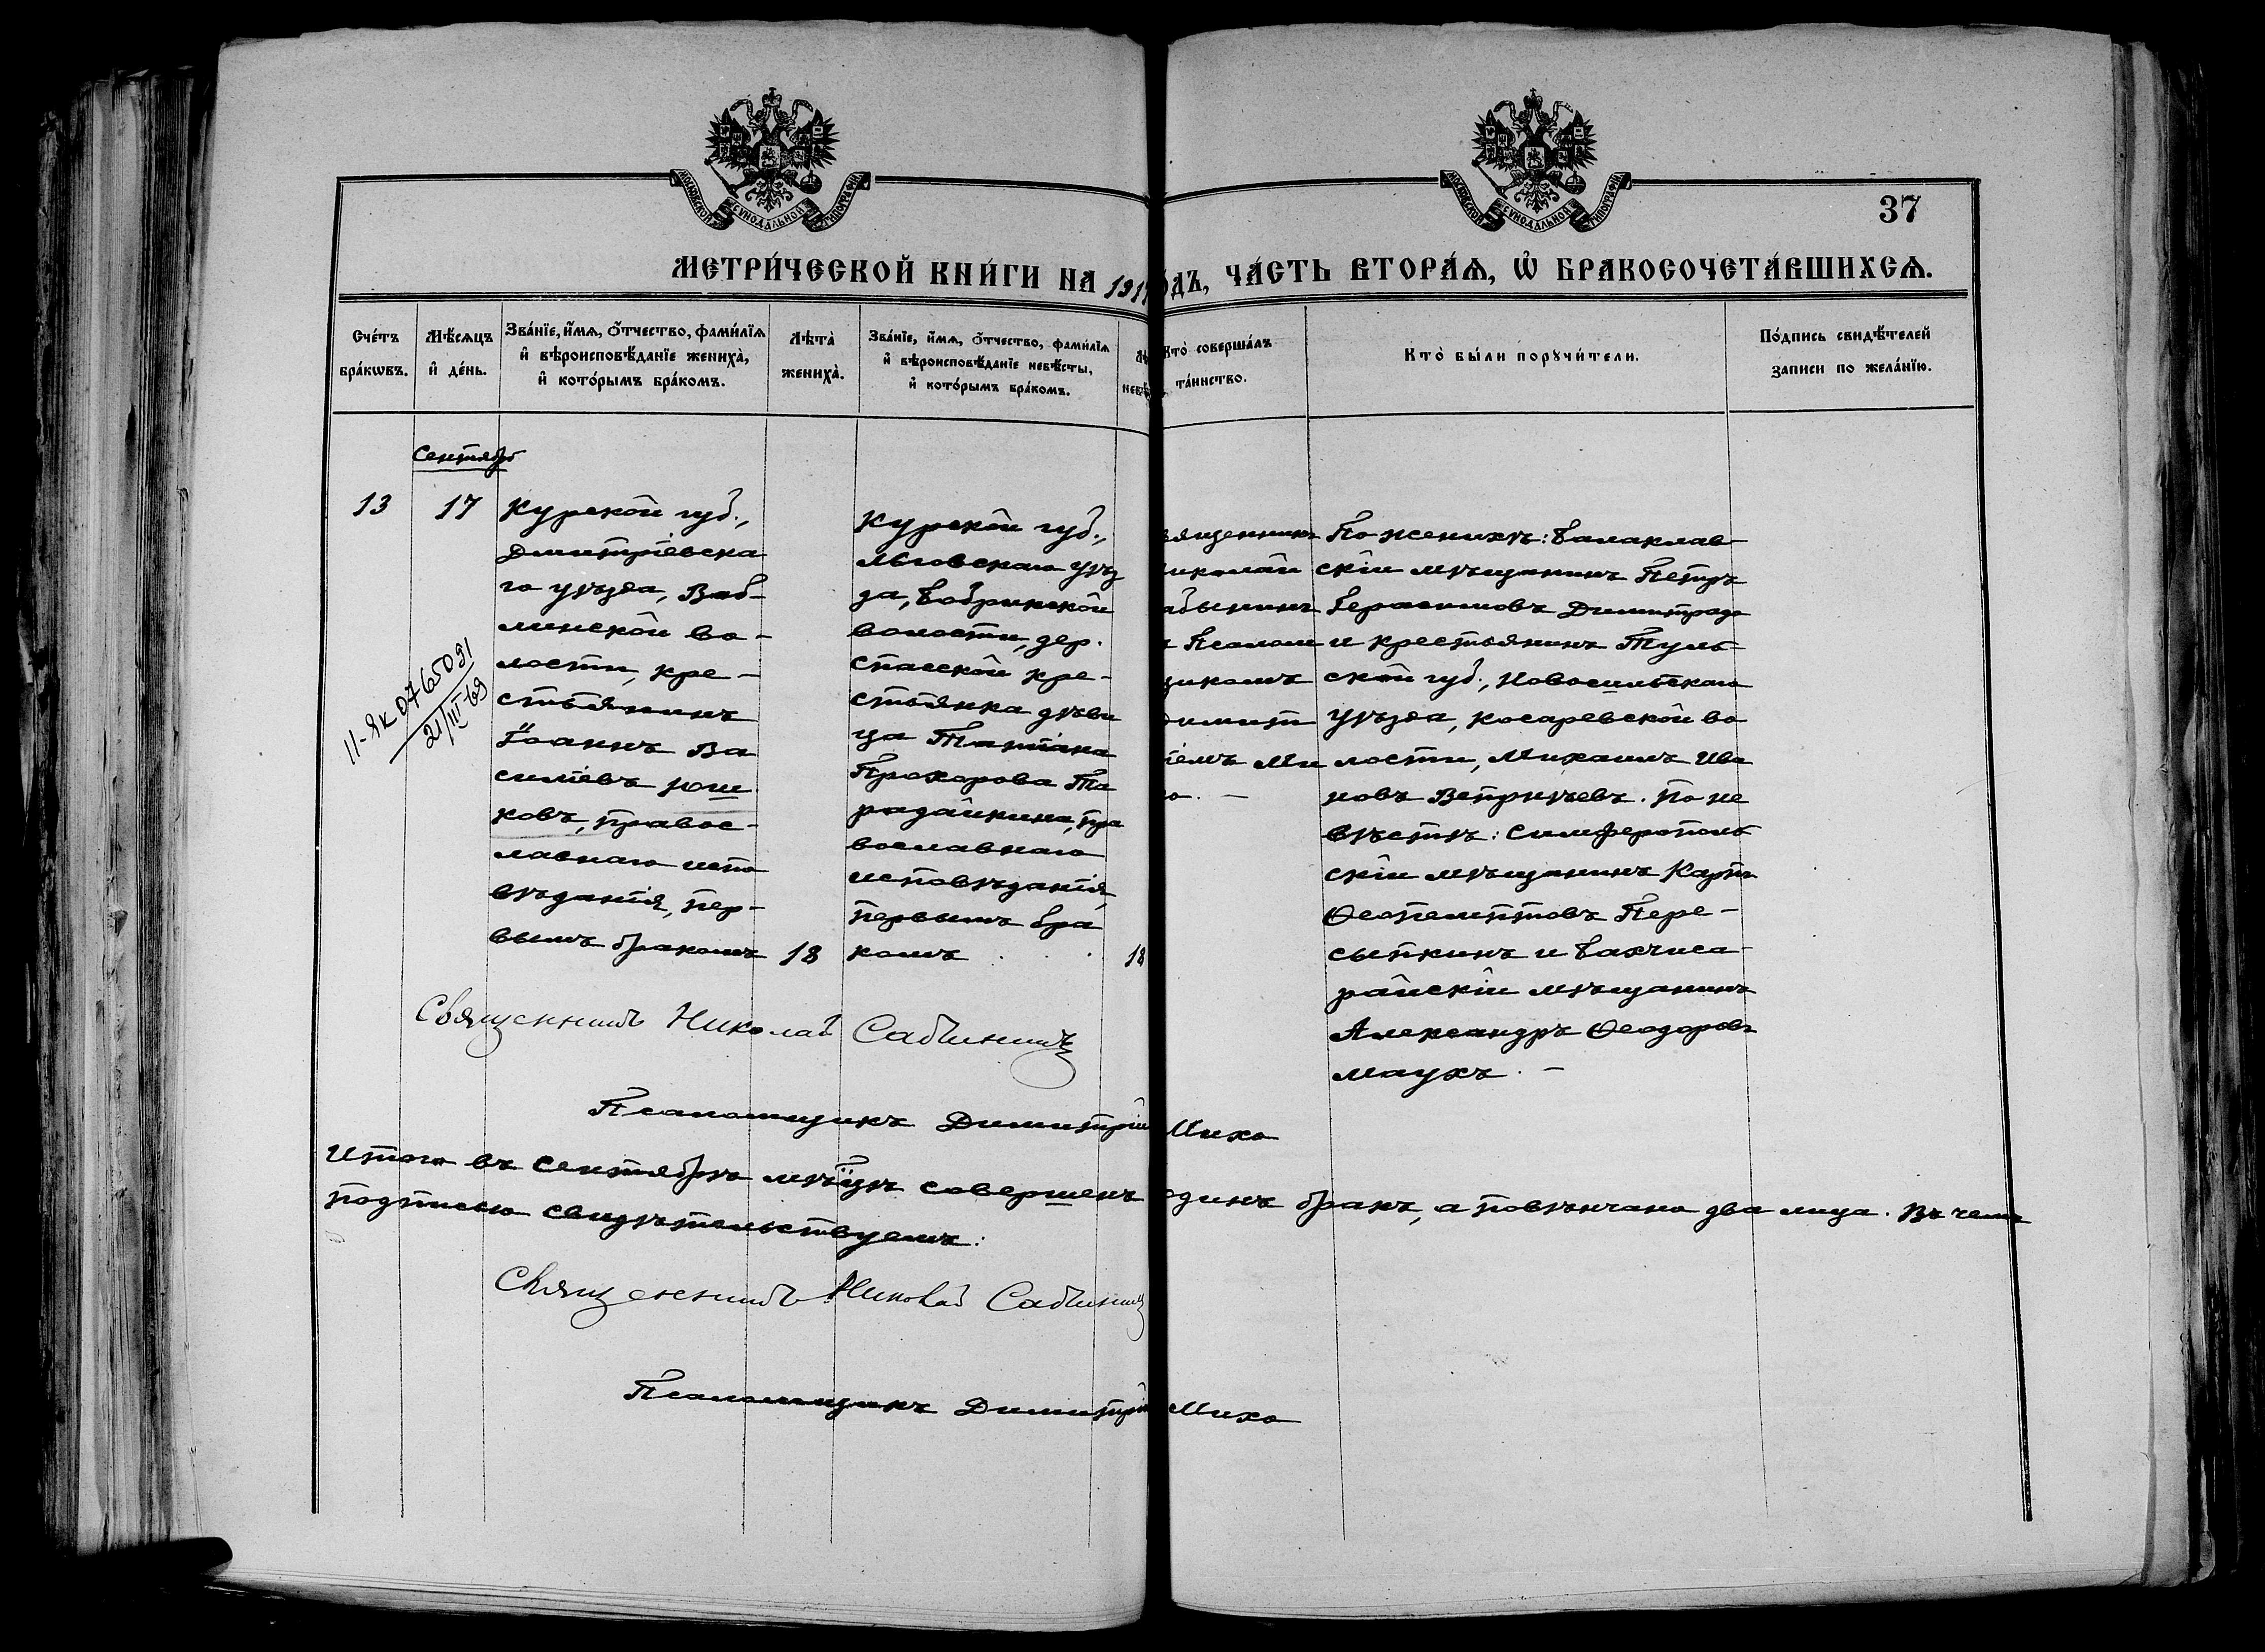 МОСКОВСКОЙ СУНОДАЛЬНОЙ ТИПОГРАФІИ
МОСКОВСКОЙ СУНОДАЛЬНОЙ ТИПОГРАФІИ
37
МЕТРИ́ЧЕСКОЙ КНИ́ГИ НА 191
ОДЪ, ЧА́СТЬ ВТОРА́Ѧ, Ѽ БРАКОСОЧЕТА́ВШИХСѦ.
Сче́тъ
бра́кѡвъ.
Мѣ́сѧцъ
и҆ де́нь.
Зва́нїе, и҆́мѧ, ѻ҆́тчество, фами́лїѧ
и҆ вѣроисповѣ́данїе жениха̀,
и҆ кото́рымъ бра́комъ.
Лѣта̀
жениха̀.
Зва́нїе, и҆́мѧ, ѻ҆́тчество, фами́лїѧ
и҆ вѣроисповѣ́данїе невѣ́сты,
и҆ кото́рымъ бра́комъ.
Лѣ
невѣ
Кто̀ соверша́лъ
та́инство.
Кто̀ бы́ли порꙋчи́тели.
По́дпись свидѣ́телей
записи по жела́нїю.
Сентябрь
13
17
Курской губ.,
Дмитріевска
го уѣзда, Ваб-
линской во-
лости, кре-
стьянинъ
Іоаннъ Ва
силіевъ Юш
ковъ, правос-
лавнаго испо
вѣданія, пер-
вымъ бракомъ
18
Курской губ.,
Льговскаго уѣз
да, Бобринской
волости, дер.
Спасской кре-
стьянка дѣви
ца Татіана
Прохорова Та
радайкина, пра
вославнаго
исповѣданія,
первымъ бра
комъ
18
вященникъ
иколай
абынинъ
Псалом
щикомъ
имит
ріемъ Ми
хо. —
По женихѣ: Балаклав-
скій мѣщанинъ Петръ
Герасимовъ Димитрадо
и крестьянинъ Туль-
ской губ., Новосильскаго
уѣзда, Косаревской во
лости, Михаилъ Ива
новъ Вепринцевъ. По не
вѣстѣ: Симферополь
скій мѣщанинъ Карпъ
Ѳеопемптовъ Пере-
сыпкинъ и Бахчиса-
райскій мѣщанинъ
Александръ Ѳеодоровъ
Маухъ. —
11-ЯК 0765091
21/III-69
Священникъ Николай Сабынинъ
Псаломщикъ Димитрій Михо
Итого въ сентябрѣ мѣсяцѣ совершенъ единъ бракъ, а повѣнчано два лица. Въ чемъ
подписью свидѣтельствуемъ:
Священникъ Николай Сабынинъ
Псаломщикъ Димитрій Михо